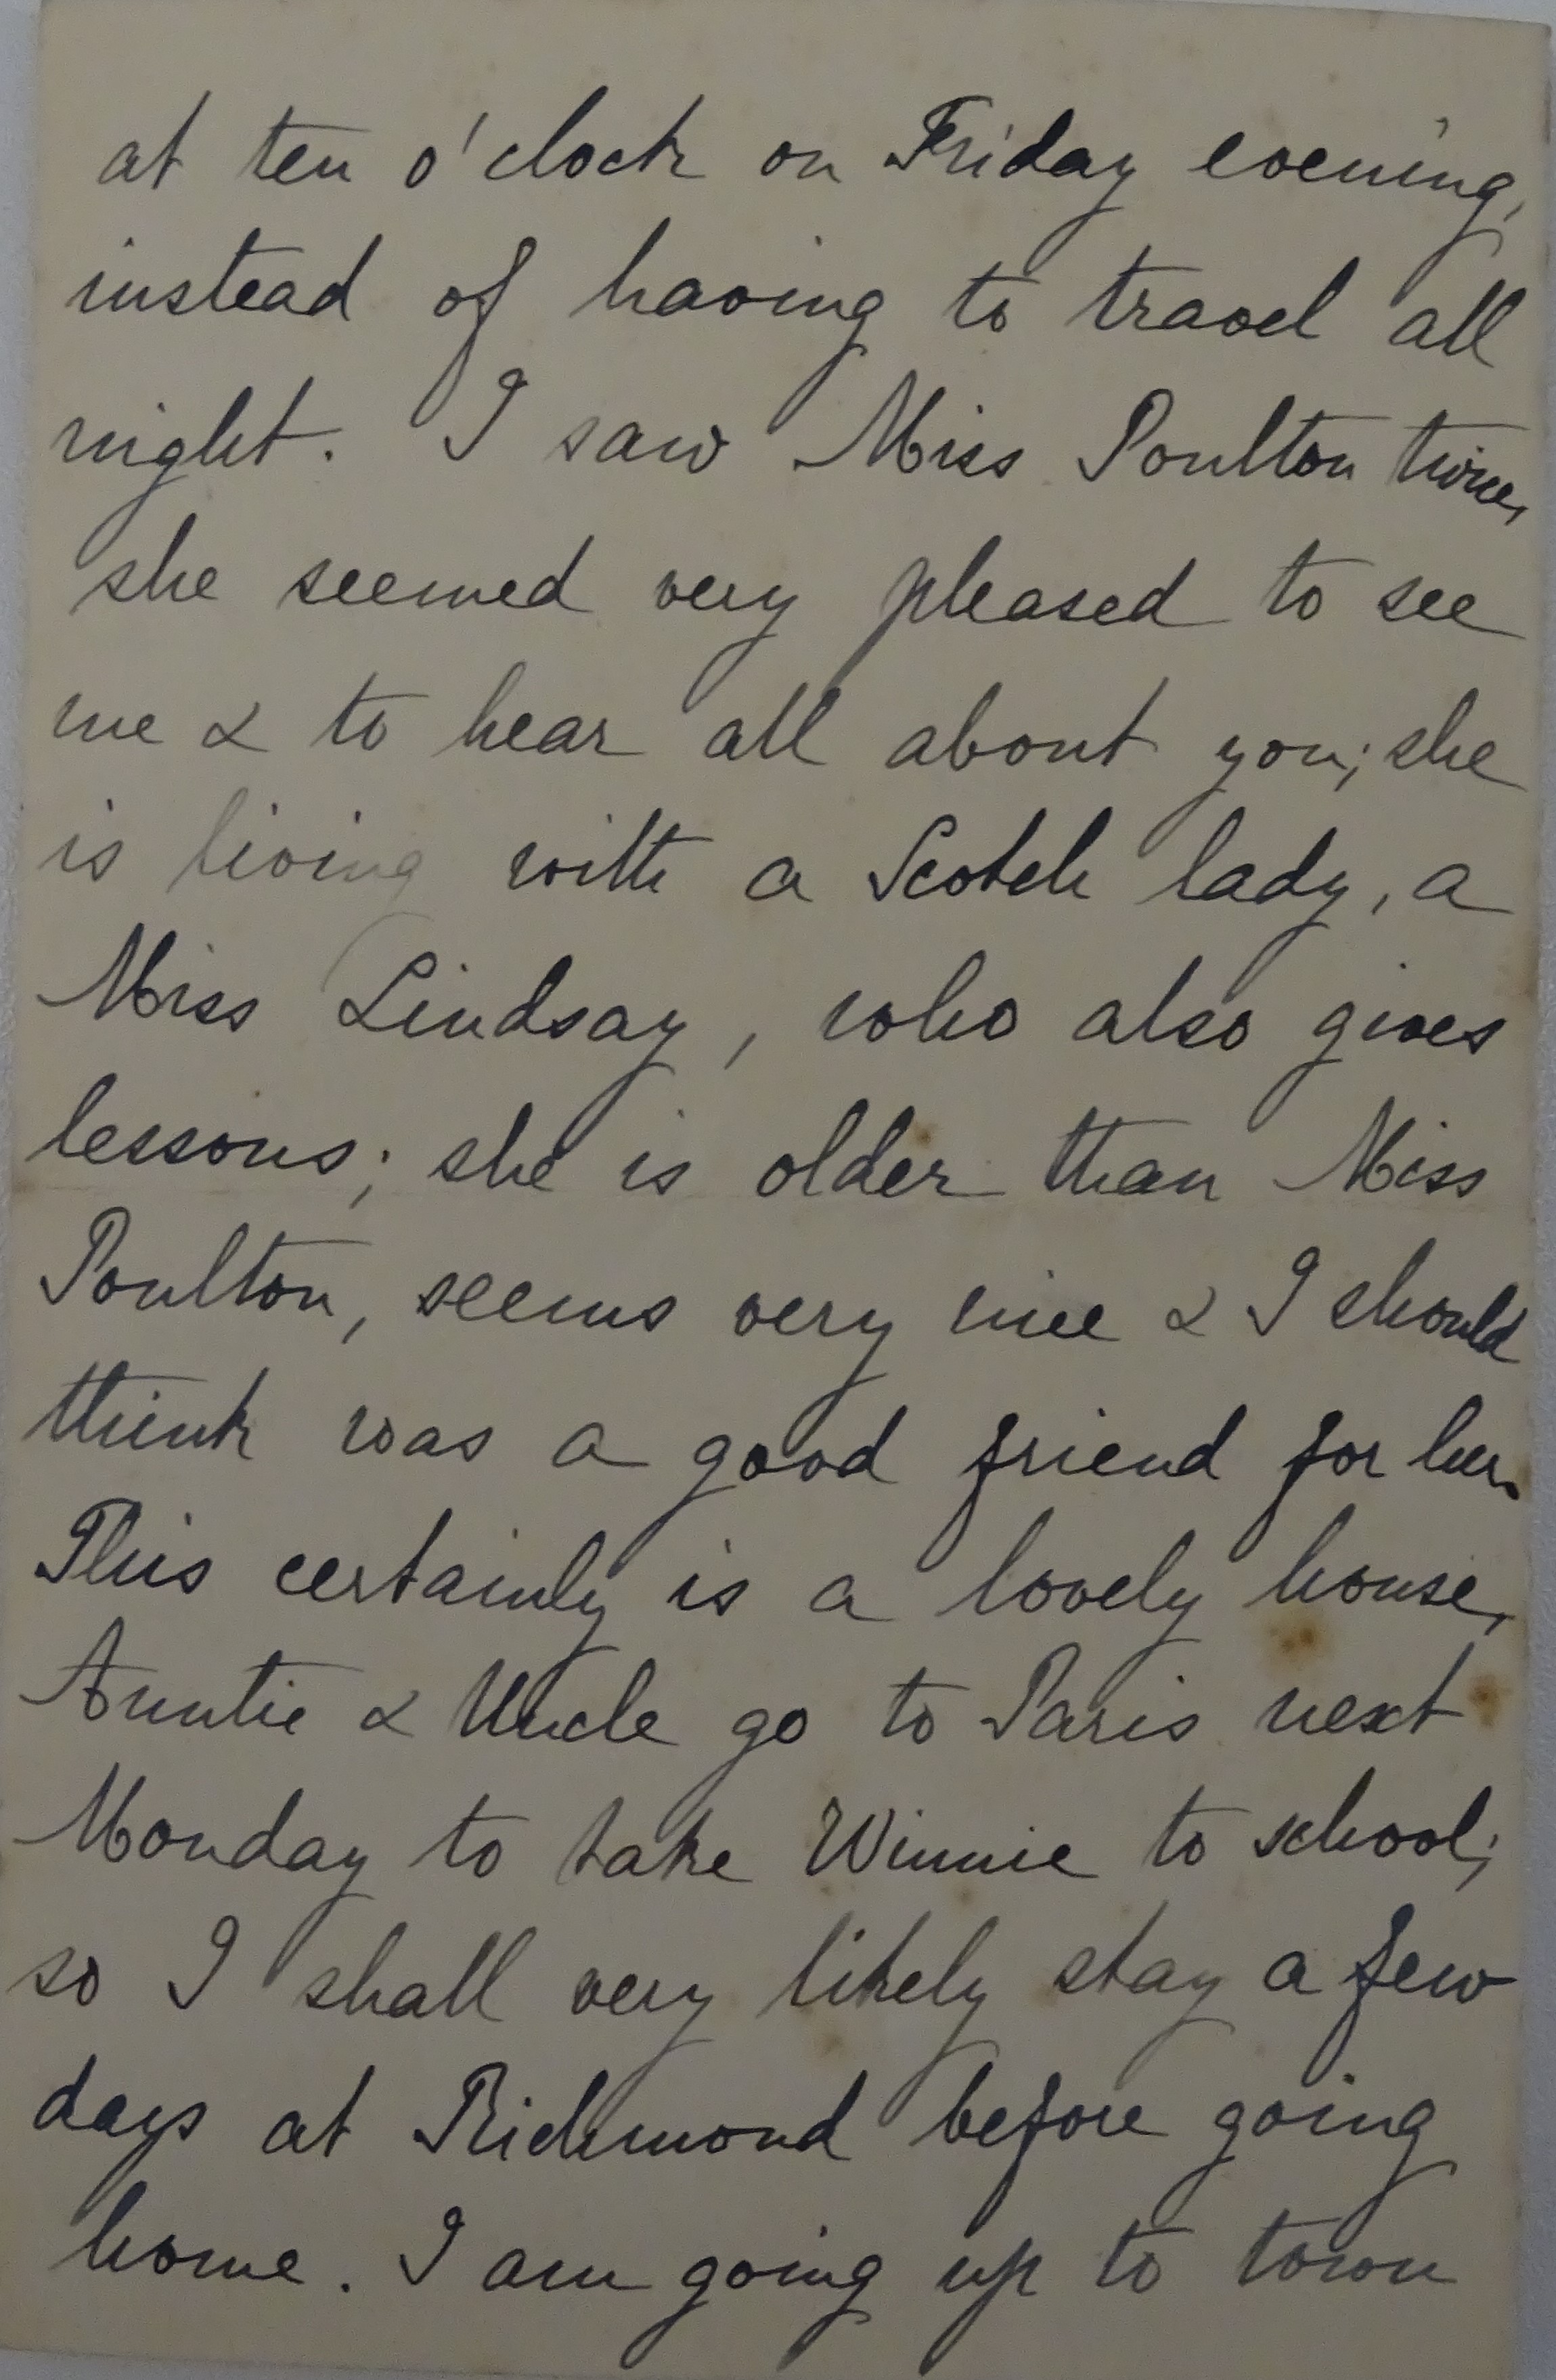 at ten o'clock on Friday evening,
instead of having to travel all
night. I saw Miss Poulton twice,
she seemed very pleased to see
me & to hear all about you; she
is living with a Scotch lady, a
Miss Lindsay, who also gives
lessons; she is older than Miss
Poulton, seems very nice & I should
think was a good friend for her.
This certainly is a lovely house,
Auntie & Uncle go to Paris next
Monday to take Winnie to school;
so I shall very likely stay a few
days at Richmond before going
home. I am going up to town